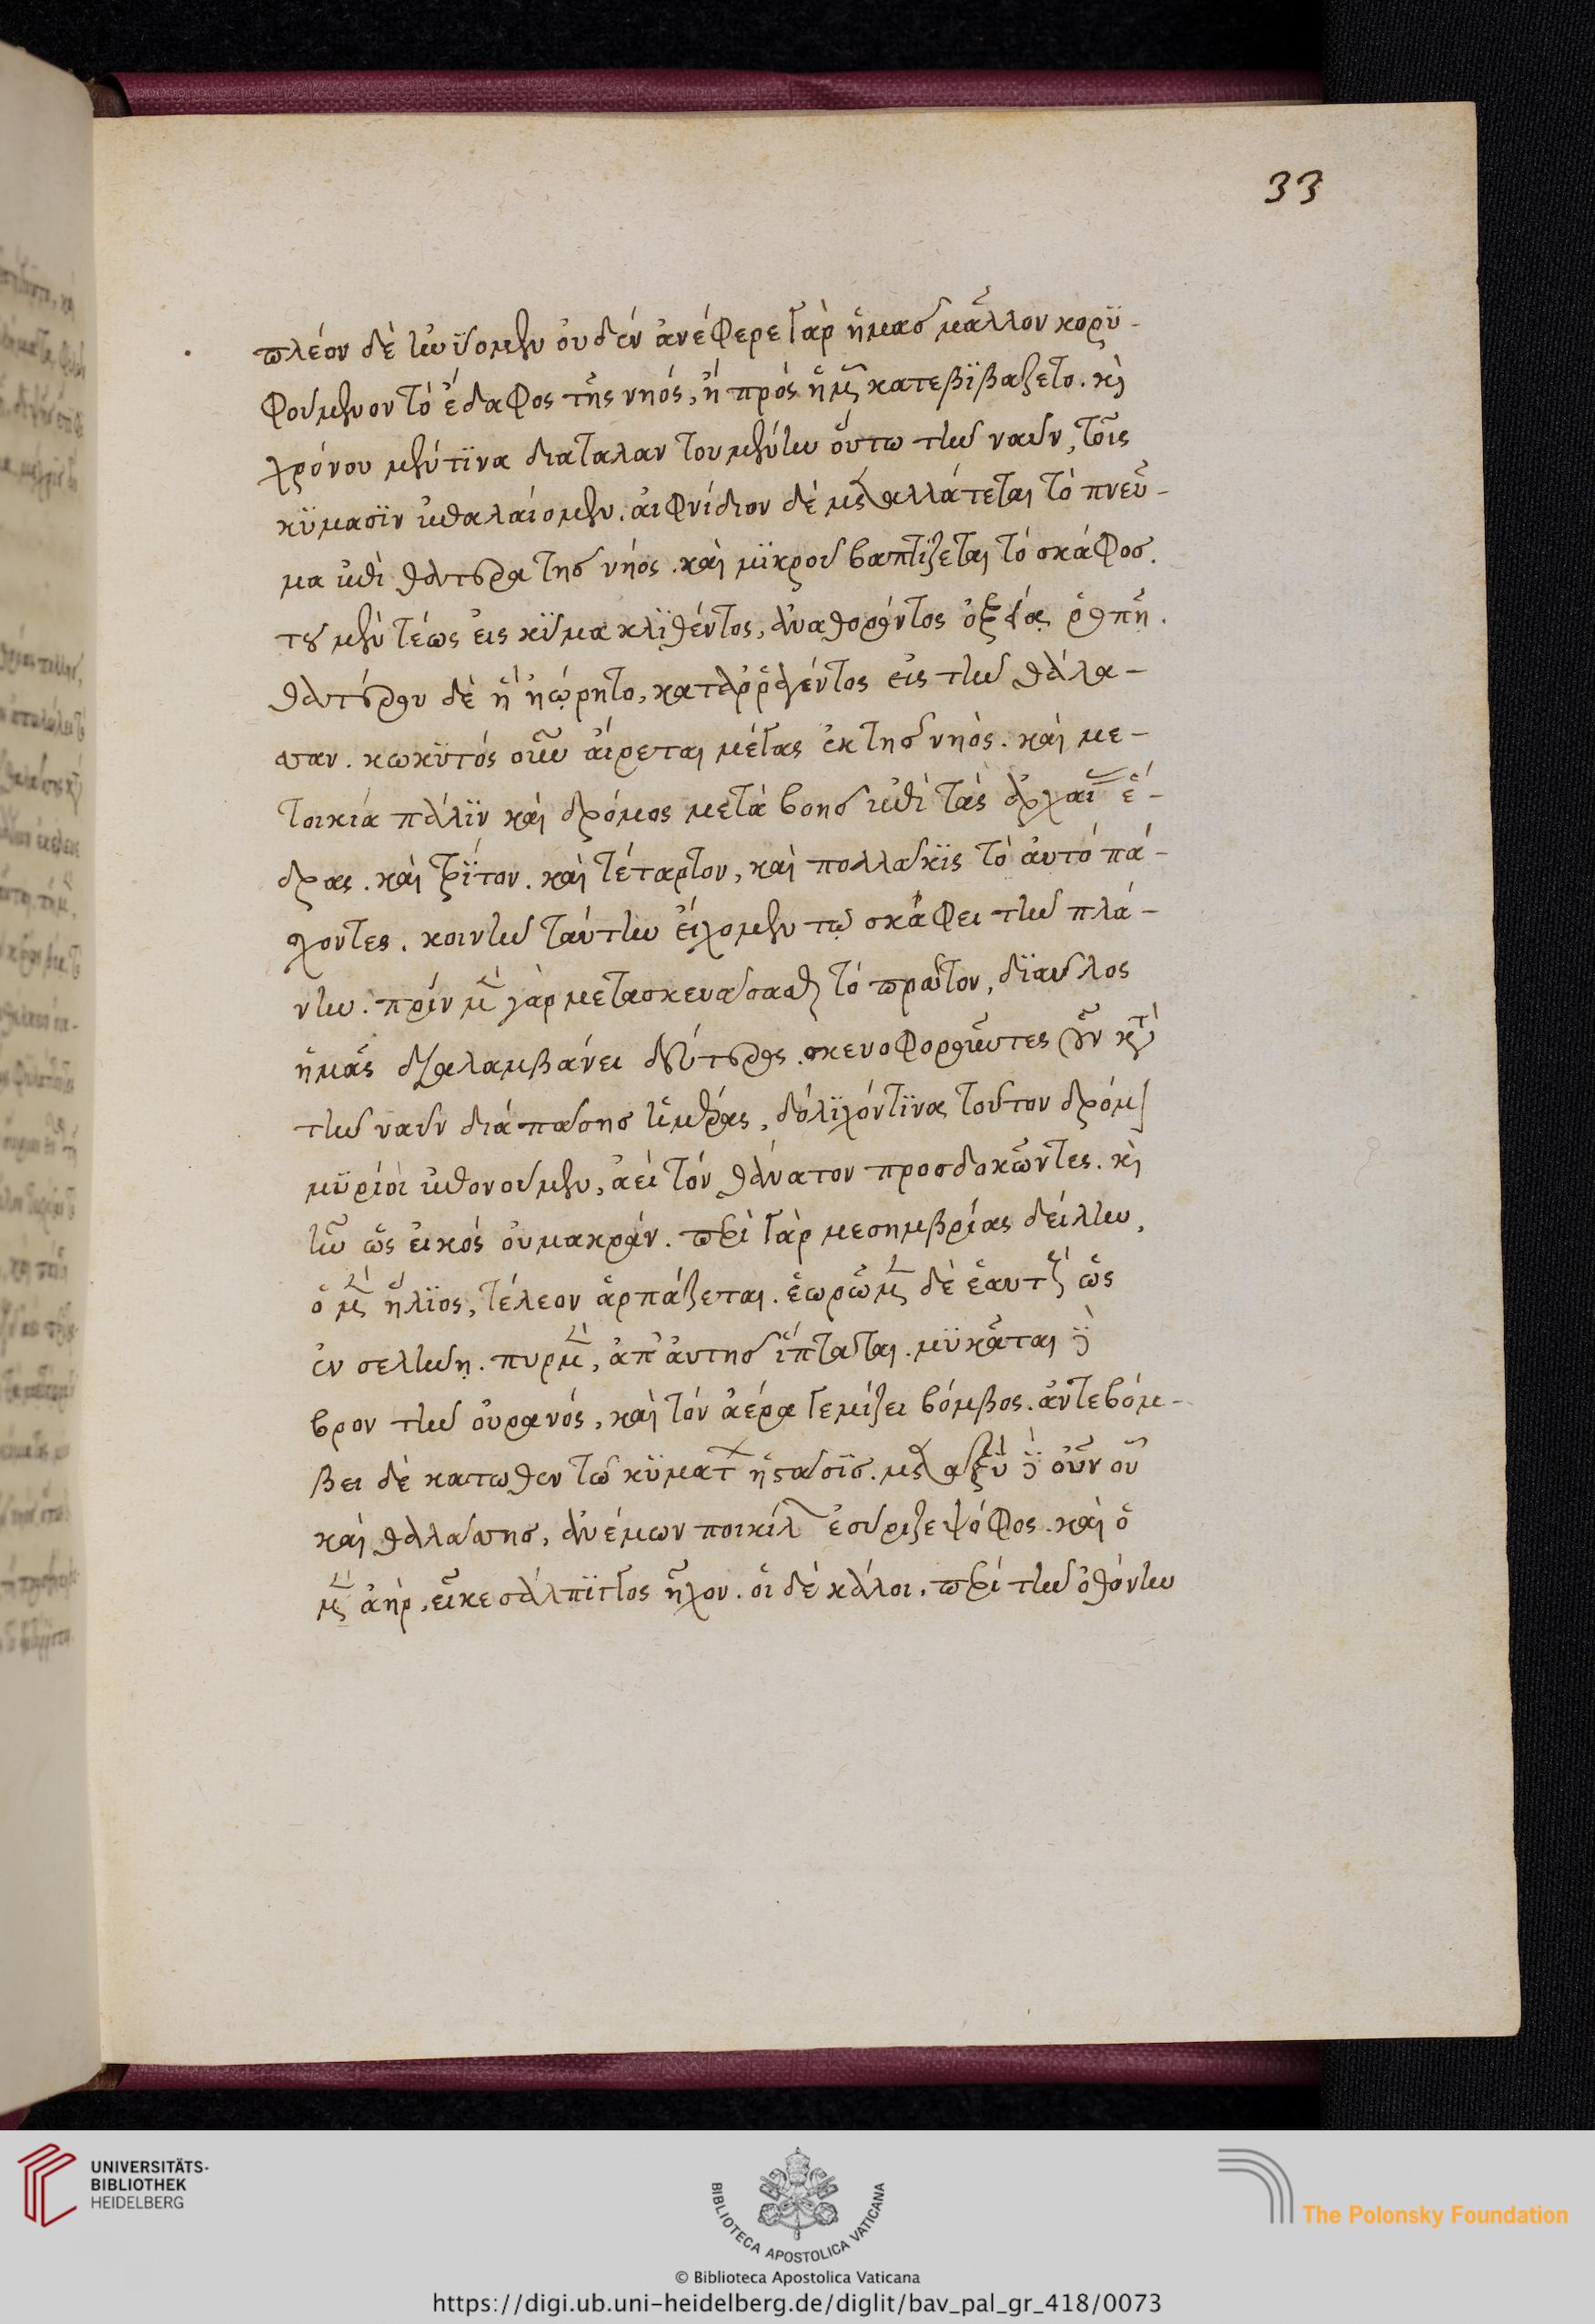 πλέον δὲ ἠνύομεν οὐδέν ἀνέφερε γὰρ ἡμᾶσ μᾶλλον κορϋ-
φούμενον τὸ ἔδαφος τῆς νηός, ἢ πρὸς ἡμῶν κατεβϊβαζετο. καὶ
χρόνον μέντϊνα διαταλαντουμένην οὕτω τὴν ναῦν, τοῖς
κϋμασϊν ἐπαλαίομεν. αἰφνίδιον δὲ μεταλλάτεται τὸ πνεῦ-
μα ἐπὶ θάτερα τησ νηός. καὶ μϊκροῦ βαπτϊζεται τὸ σκάφοσ.
τοῦ μὲν τέως εἰς κῦμα κλϊθέντος, ἀναθορόντος ὀξείᾳ ῥοπῆ.
θατέρου δὲ ἢ ἠώρητο, καταρραγέντος εἰς τὴν θάλα-
σσαν. κωκϋτός οὖν αἴρεται μέγας ἐκ τησ νηὸς. καὶ με-
τοικία πάλϊν καὶ δρόμος μετὰ βοησ ἐπὶ τὰς ἀρχαίας ἕ-
δρας. καὶ τρίτον. καὶ τέταρτον, καὶ πολλακϊς τὸ ἀυτό πά-
σχοντες. κοινὴν ταύτην εἴχομεν τῷ σκάφει τὴν πλά-
νην. πρίν μὲν γὰρ μετασκευασασθαι τὸ πρῶτον, δϊαυλος
ἡμᾶς διαλαμβάνει δεύτερος. σκευοφοροῦντες οὖν κατὰ
τὴν ναῦν διάπασησ ἡμέρας, δόλϊχόντϊνα τοῦτον δρόμον
μϋρίον ἐπονοῦμεν, ἀεὶ τὸν θάνατον προσδοκῶντες. καὶ
ἦν ὡς εἰκός οὐμακράν. περὶ γὰρ μεσημβρίας δείλην,
ὁ μὲν ἥλϊος, τέλεον ἁρπάζεται. ἑωρῶμεν δὲ ἑαυτοὺς ὡς
ἐν σελήνῃ. πυρμὲν, ἀπ' ἀυτησ ἵπταται. μϋκᾶται δὲ
βρον τὴν οὐρανός, καὶ τὸν ἀέρα γεμίζει βόμβος. ἀντεβόμ-
βει δὲ κατωθεν τῶ κϋμάτων ἡ στασϊσ. μεταξὺ δὲ οὖν οῦ
καὶ θαλασσησ, ἀνέμων ποικίλων ἐσύριζε ψόφος. καὶ ὁ
μὲν ἀὴρ, εἶχε σάλπϊγγος ἦχον. οἱ δὲ κάλοι, περί τὴν ὀθόνην
33
UNIVERSITÄTS-
BIBLIOTHEK
HEIDELBERG
BIBLIOTECA APOSTOLICA VATICANA
The Polonsky Foundation
© Biblioteca Apostolica Vaticana
https://digi.ub.uni-heidelberg.de/diglit/bav_pal_gr_418/0073